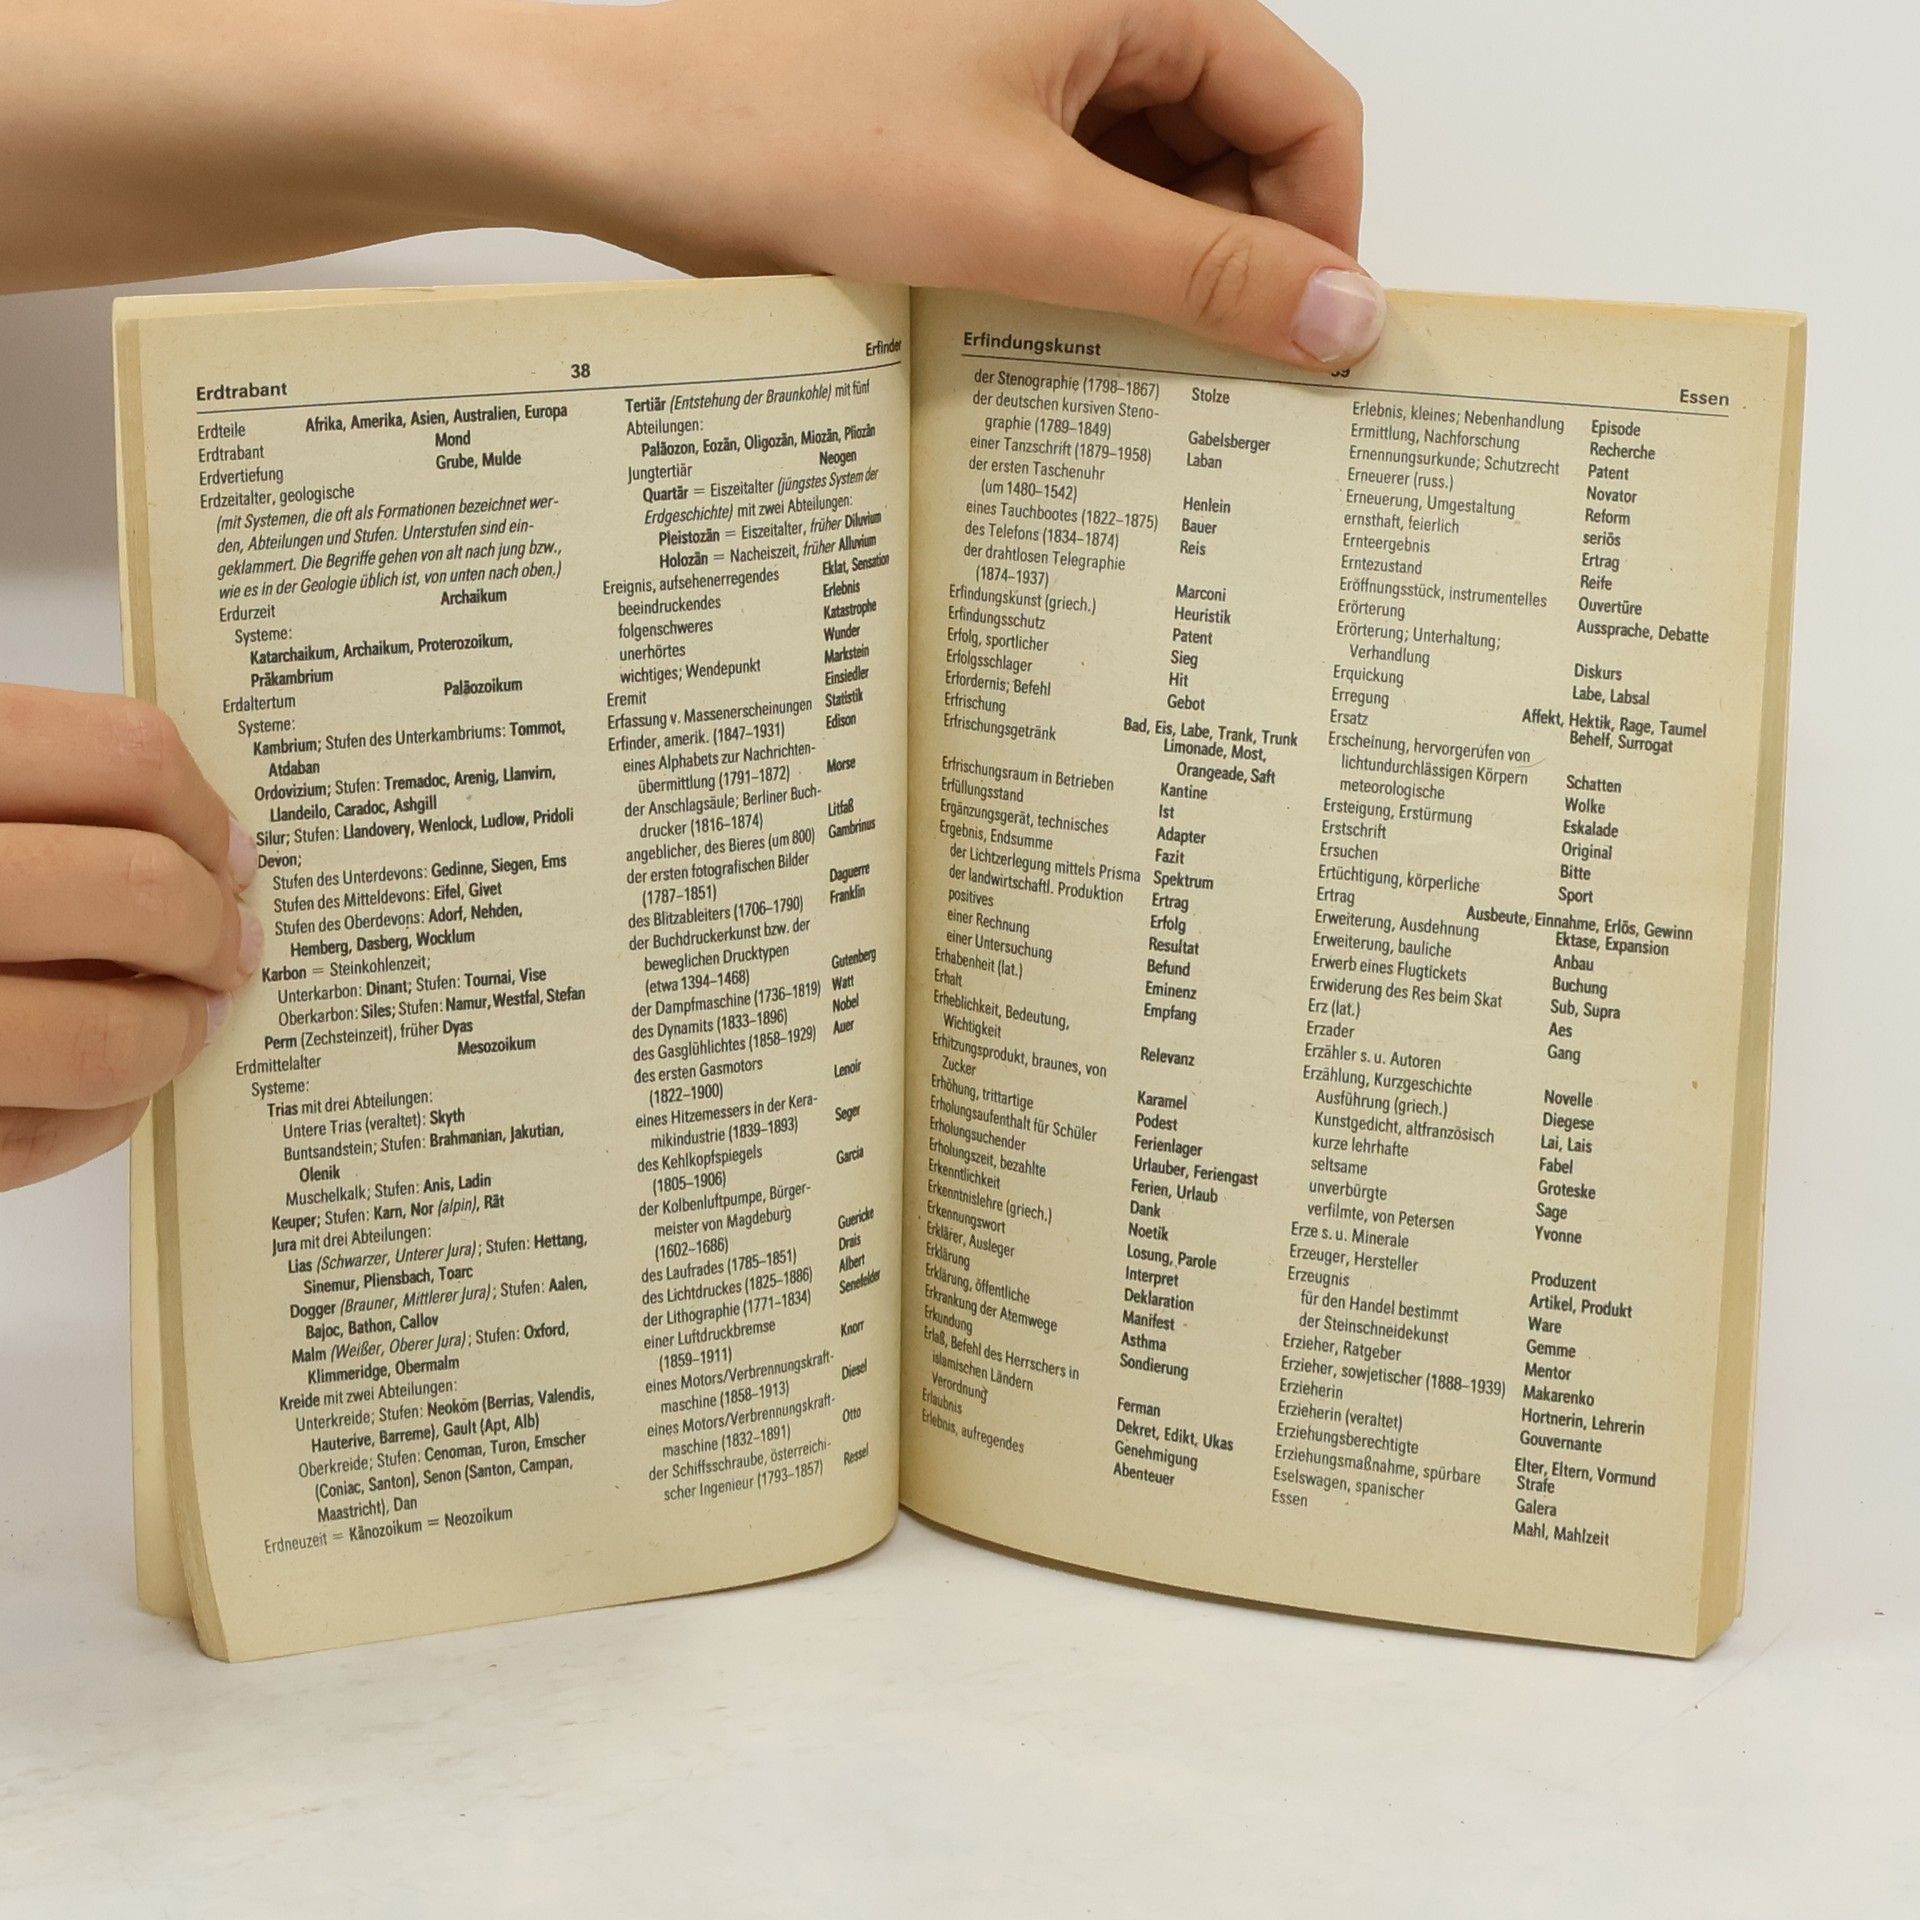 Erdtrabant 38 Erfinder
Erdteile Afrika, Amerika, Asien, Australien, Europa
Erdtrabant Mond
Erdvertiefung Grube, Mulde
Erdzeitalter, geologische
(mit Systemen, die oft als Formationen bezeichnet wer-
den, Abteilungen und Stufen. Unterstufen sind ein-
geklammert. Die Begriffe gehen von alt nach jung bzw.,
wie es in der Geologie üblich ist, von unten nach oben.)
Erdurzeit Archaikum
Systeme:
Katarchaikum, Archaikum, Proterozoikum,
Präkambrium
Erdaltertum Paläozoikum
Systeme:
Kambrium; Stufen des Unterkambriums: Tommot,
Atdaban
Ordovizium; Stufen: Tremadoc, Arenig, Llanvirn,
Llandeilo, Caradoc, Ashgill
Silur; Stufen: Llandovery, Wenlock, Ludlow, Pridoli
Devon;
Stufen des Unterdevons: Gedinne, Siegen, Ems
Stufen des Mitteldevons: Eifel, Givet
Stufen des Oberdevons: Adorf, Nehden,
Hemberg, Dasberg, Wocklum
Karbon = Steinkohlenzeit;
Unterkarbon: Dinant; Stufen: Tournai, Vise
Oberkarbon: Siles; Stufen: Namur, Westfal, Stefan
Perm (Zechsteinzeit), früher Dyas
Erdmittelalter Mesozoikum
Systeme:
Trias mit drei Abteilungen:
Untere Trias (veraltet): Skyth
Buntsandstein; Stufen: Brahmanian, Jakutian,
Olenik
Muschelkalk; Stufen: Anis, Ladin
Keuper; Stufen: Karn, Nor (alpin), Rät
Jura mit drei Abteilungen:
Lias (Schwarzer, Unterer Jura); Stufen: Hettang,
Sinemur, Pliensbach, Toarc
Dogger (Brauner, Mittlerer Jura); Stufen: Aalen,
Bajoc, Bathon, Callov
Malm (Weißer, Oberer Jura); Stufen: Oxford,
Klimmeridge, Obermalm
Kreide mit zwei Abteilungen:
Unterkreide; Stufen: Neokom (Berrias, Valendis,
Hauterive, Barreme), Gault (Apt, Alb)
Oberkreide; Stufen: Cenoman, Turon, Emscher
(Coniac, Santon), Senon (Santon, Campan,
Maastricht), Dan
Erdneuzeit = Känozoikum = Neozoikum
Tertiär (Entstehung der Braunkohle) mit fünf
Abteilungen:
Paläozon, Eozän, Oligozän, Miozän, Pliozän
Jungtertiär Neogen
Quartär = Eiszeitalter (jüngstes System der
Erdgeschichte) mit zwei Abteilungen:
Pleistozän = Eiszeitalter, früher Diluvium
Holozän = Nacheiszeit, früher Alluvium
Ereignis, aufsehenerregendes Eklat, Sensation
beeindruckendes Erlebnis
folgenschweres Katastrophe
unerhörtes Wunder
wichtiges; Wendepunkt Markstein
Eremit Einsiedler
Erfassung v. Massenerscheinungen Statistik
Erfinder, amerik. (1847–1931) Edison
eines Alphabets zur Nachrichten-
übermittlung (1791–1872) Morse
der Anschlagsäule; Berliner Buch-
drucker (1816–1874) Litfaß
angeblicher, des Bieres (um 800) Gambrinus
der ersten fotografischen Bilder
(1787–1851) Daguerre
des Blitzableiters (1706–1790) Franklin
der Buchdruckerkunst bzw. der
beweglichen Drucktypen
(etwa 1394–1468) Gutenberg
der Dampfmaschine (1736–1819) Watt
des Dynamits (1833–1896) Nobel
des Gasglühlichtes (1858–1929) Auer
des ersten Gasmotors
(1822–1900) Lenoir
eines Hitzemessers in der Kera-
mikindustrie (1839–1893) Seger
des Kehlkopfspiegels
(1805–1906) Garcia
der Kolbenluftpumpe, Bürger-
meister von Magdeburg
(1602–1686) Guericke
des Laufrades (1785–1851) Drais
des Lichtdruckes (1825–1886) Albert
der Lithographie (1771–1834) Senefelder
einer Luftdruckbremse
(1859–1911) Knorr
eines Motors/Verbrennungskraft-
maschine (1858–1913) Diesel
eines Motors/Verbrennungskraft-
maschine (1832–1891) Otto
der Schiffsschraube, österreichi-
scher Ingenieur (1793–1857) Ressel
Erfindungskunst 39 Essen
der Stenographie (1798–1867) Stolze
der deutschen kursiven Steno-
graphie (1789–1849) Gabelsberger
einer Tanzschrift (1879–1958) Laban
der ersten Taschenuhr
(um 1480–1542) Henlein
eines Tauchbootes (1822–1875) Bauer
des Telefons (1834–1874) Reis
der drahtlosen Telegraphie
(1874–1937) Marconi
Erfindungskunst (griech.) Heuristik
Erfindungsschutz Patent
Erfolg, sportlicher Sieg
Erfolgsschlager Hit
Erfordernis; Befehl Gebot
Erfrischung Bad, Eis, Labe, Trank, Trunk
Erfrischungsgetränk Limonade, Most,
Orangeade, Saft
Erfrischungsraum in Betrieben Kantine
Erfüllungsstand Ist
Ergänzungsgerät, technisches Adapter
Ergebnis, Endsumme Fazit
der Lichtzerlegung mittels Prisma Spektrum
der landwirtschaftl. Produktion Ertrag
positives Erfolg
einer Rechnung Resultat
einer Untersuchung Befund
Erhabenheit (lat.) Eminenz
Erhalt Empfang
Erheblichkeit, Bedeutung,
Wichtigkeit Relevanz
Erhitzungsprodukt, braunes, von
Zucker Karamel
Erhöhung, trittartige Podest
Erholungsaufenthalt für Schüler Ferienlager
Erholungsuchender Urlauber, Feriengast
Erholungszeit, bezahlte Ferien, Urlaub
Erkenntlichkeit Dank
Erkenntnislehre (griech.) Noetik
Erkennungswort Losung, Parole
Erklärer, Ausleger Interpret
Erklärung Deklaration
Erklärung, öffentliche Manifest
Erkrankung der Atemwege Asthma
Erkundung Sondierung
Erlaß, Befehl des Herrschers in
islamischen Ländern Ferman
Verordnung Dekret, Edikt, Ukas
Erlaubnis Genehmigung
Erlebnis, aufregendes Abenteuer
Erlebnis, kleines; Nebenhandlung Episode
Ermittlung, Nachforschung Recherche
Ernennungsurkunde; Schutzrecht Patent
Erneuerer (russ.) Novator
Erneuerung, Umgestaltung Reform
ernsthaft, feierlich seriös
Ernteergebnis Ertrag
Erntezustand Reife
Eröffnungsstück, instrumentelles Ouvertüre
Erörterung Aussprache, Debatte
Erörterung; Unterhaltung;
Verhandlung Diskurs
Erquickung Labe, Labsal
Erregung Affekt, Hektik, Rage, Taumel
Ersatz Behelf, Surrogat
Erscheinung, hervorgerufen von
lichtundurchlässigen Körpern Schatten
meteorologische Wolke
Ersteigung, Erstürmung Eskalade
Erstschrift Original
Ersuchen Bitte
Ertüchtigung, körperliche Sport
Ertrag Ausbeute, Einnahme, Erlös, Gewinn
Erweiterung, Ausdehnung Ektase, Expansion
Erweiterung, bauliche Anbau
Erwerb eines Flugtickets Buchung
Erwiderung des Res beim Skat Sub, Supra
Erz (lat.) Aes
Erzader Gang
Erzähler s. u. Autoren
Erzählung, Kurzgeschichte Novelle
Ausführung (griech.) Diegese
Kunstgedicht, altfranzösisch Lai, Lais
kurze lehrhafte Fabel
seltsame Groteske
unverbürgte Sage
verfilmte, von Petersen Yvonne
Erze s. u. Minerale
Erzeuger, Hersteller Produzent
Erzeugnis Artikel, Produkt
für den Handel bestimmt Ware
der Steinschneidekunst Gemme
Erzieher, Ratgeber Mentor
Erzieher, sowjetischer (1888–1939) Makarenko
Erzieherin Hortnerin, Lehrerin
Erzieherin (veraltet) Gouvernante
Erziehungsberechtigte Elter, Eltern, Vormund
Erziehungsmaßnahme, spürbare Strafe
Eselswagen, spanischer Galera
Essen Mahl, Mahlzeit